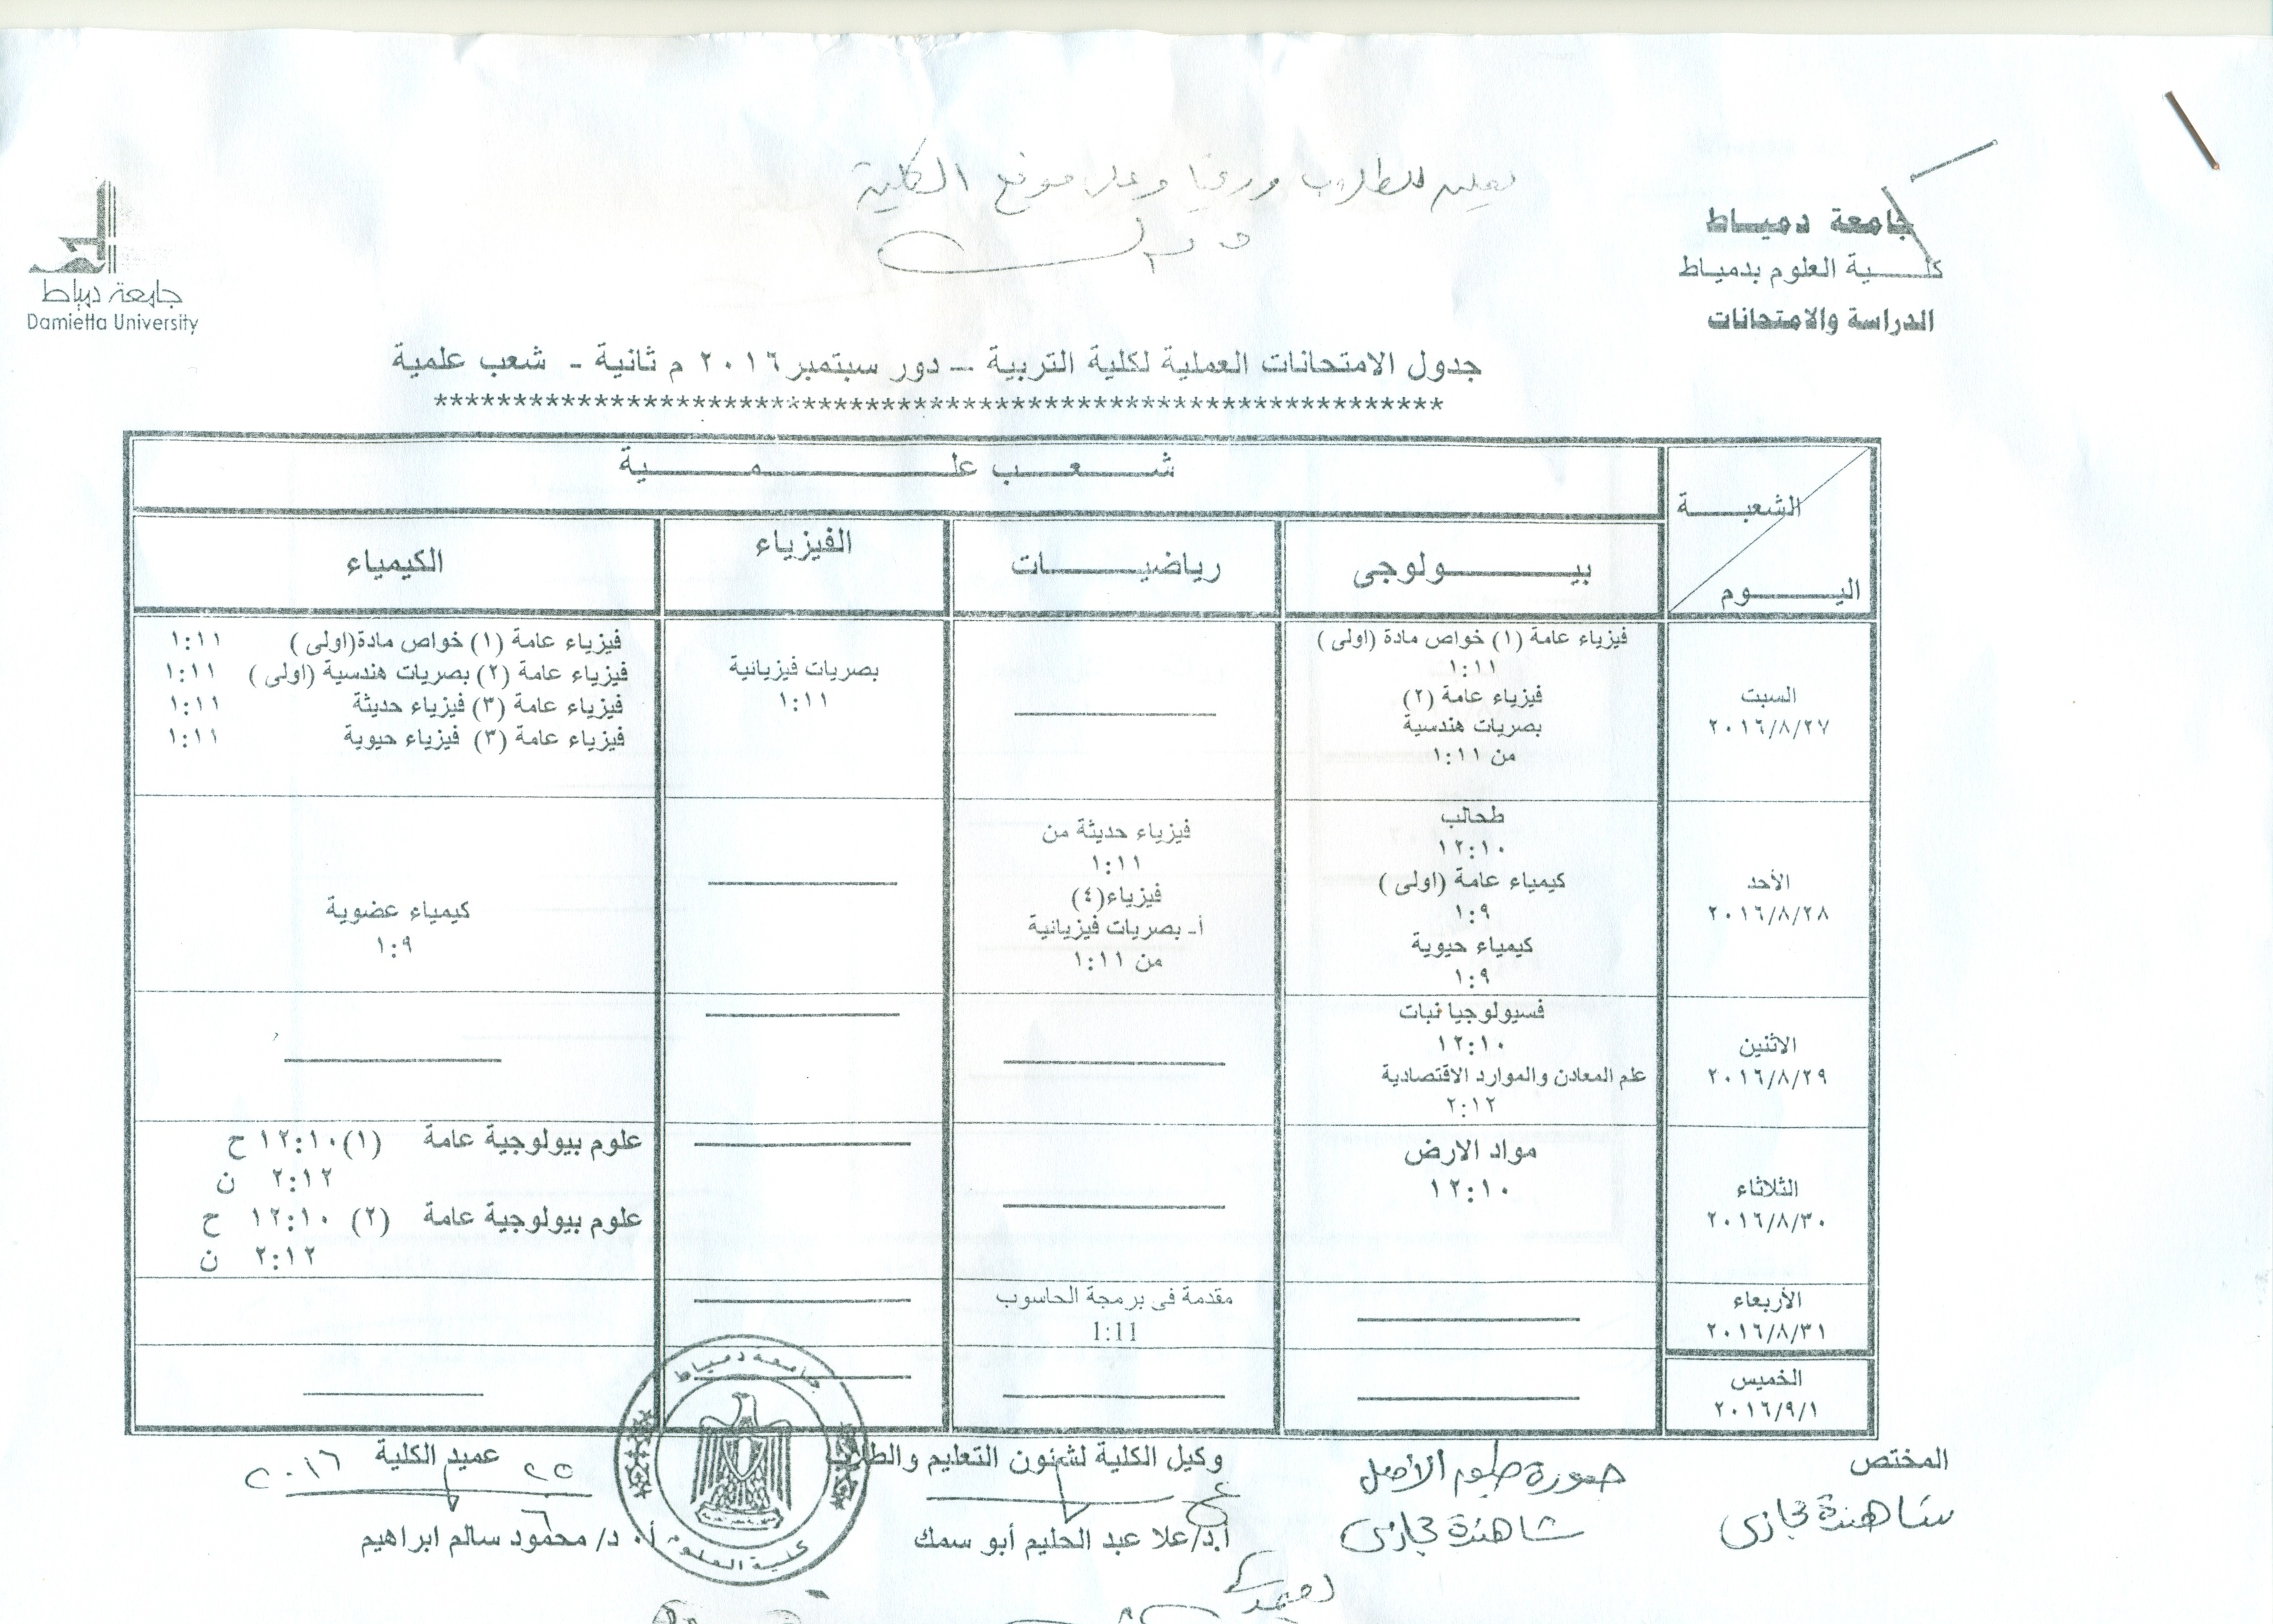 يعلن للطلاب ورقيا وعلى موقع الكلية
جامعة دمياط
كلية العلوم بدمياط
الدراسة والامتحانات
جامعة دمياط
Damietta University
جدول الامتحانات العملية لكلية التربية – دور سبتمبر ٢٠١٦ م ثانية - شعب علمية
****************************************************************
الشعبة
اليوم
شعب علمية
بيولوجى
رياضيات
الفيزياء
الكيمياء
السبت
٢٠١٦/٨/٢٧
فيزياء عامة (١) خواص مادة (اولى )
١:١١
فيزياء عامة (٢)
بصريات هندسية
من ١:١١
بصريات فيزيائية
١:١١
فيزياء عامة (١) خواص مادة(اولى ) ١:١١
فيزياء عامة (٢) بصريات هندسية (اولى ) ١:١١
فيزياء عامة (٣) فيزياء حديثة ١:١١
فيزياء عامة (٣) فيزياء حيوية ١:١١
الأحد
٢٠١٦/٨/٢٨
طحالب
١٢:١٠
كيمياء عامة (اولى )
١:٩
كيمياء حيوية
١:٩
فيزياء حديثة من
١:١١
فيزياء(٤)
أ- بصريات فيزيائية
من ١:١١
كيمياء عضوية
١:٩
الاثنين
٢٠١٦/٨/٢٩
فسيولوجيا نبات
١٢:١٠
علم المعادن والموارد الاقتصادية
٢:١٢
الثلاثاء
٢٠١٦/٨/٣٠
مواد الارض
١٢:١٠
علوم بيولوجية عامة (١) ١٢:١٠ ح
٢:١٢ ن
علوم بيولوجية عامة (٢) ١٢:١٠ ح
٢:١٢ ن
الأربعاء
٢٠١٦/٨/٣١
مقدمة فى برمجة الحاسوب
1:11
الخميس
٢٠١٦/٩/١
المختص
شاهندة حجازى
صورة طبق الأصل
شاهندة حجازى
وكيل الكلية لشئون التعليم والطلاب
أ.د/علا عبد الحليم أبو سمك
عميد الكلية
٢٠١٦
أ. د/ محمود سالم ابراهيم
جامعة دمياط
كلية العلوم